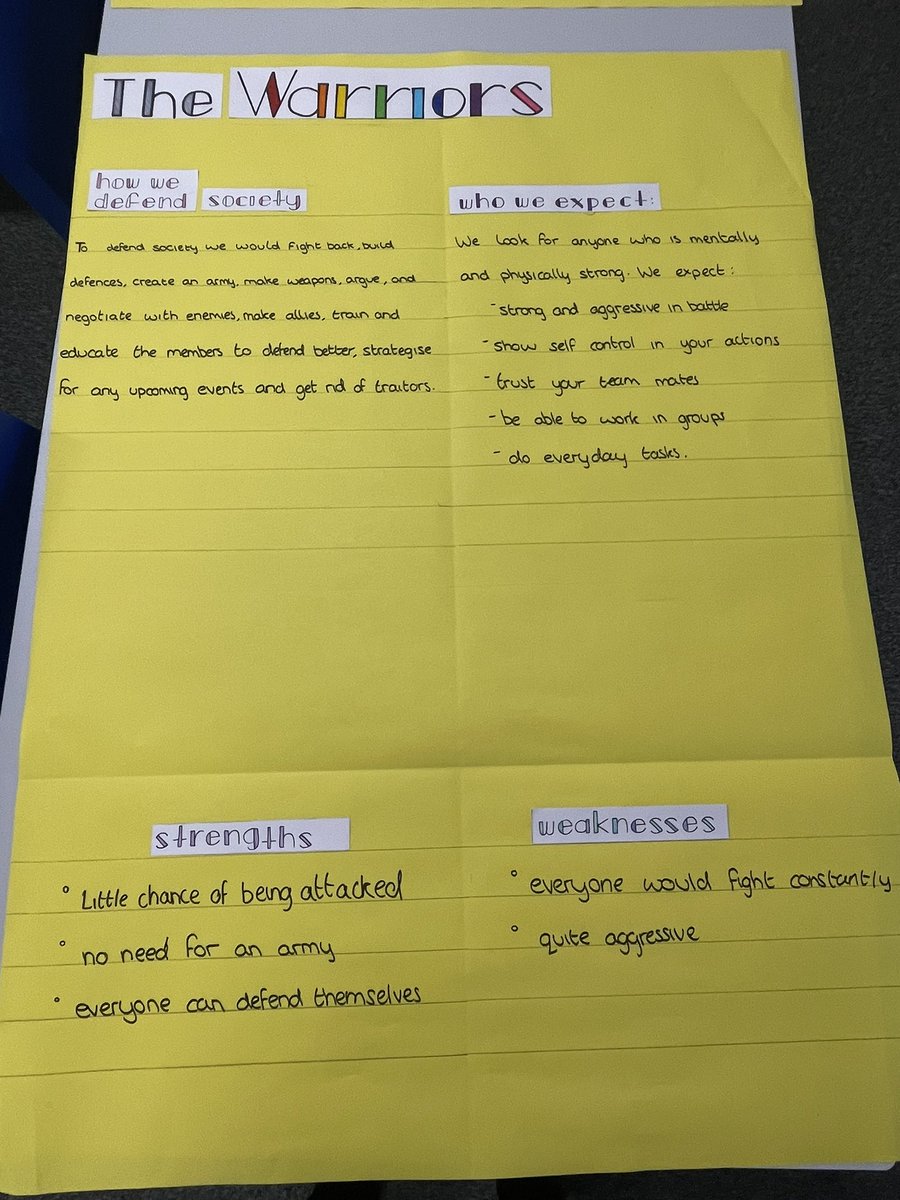 The Warriors
how we
defend society
To defend society we would fight back, build
defences, create an army, make weapons, argue, and
negotiate with enemies, make allies, train and
educate the members to defend better, strategise
for any upcoming events and get rid of traitors.
who we expect:
We look for anyone who is mentally
and physically strong. We expect:
- strong and aggressive in battle
- show self control in your actions
- trust your team mates
- be able to work in groups
- do everyday tasks.
strengths
° Little chance of being attacked
° no need for an army
° everyone can defend themselves
weaknesses
° everyone would fight constantly
° quite aggressive